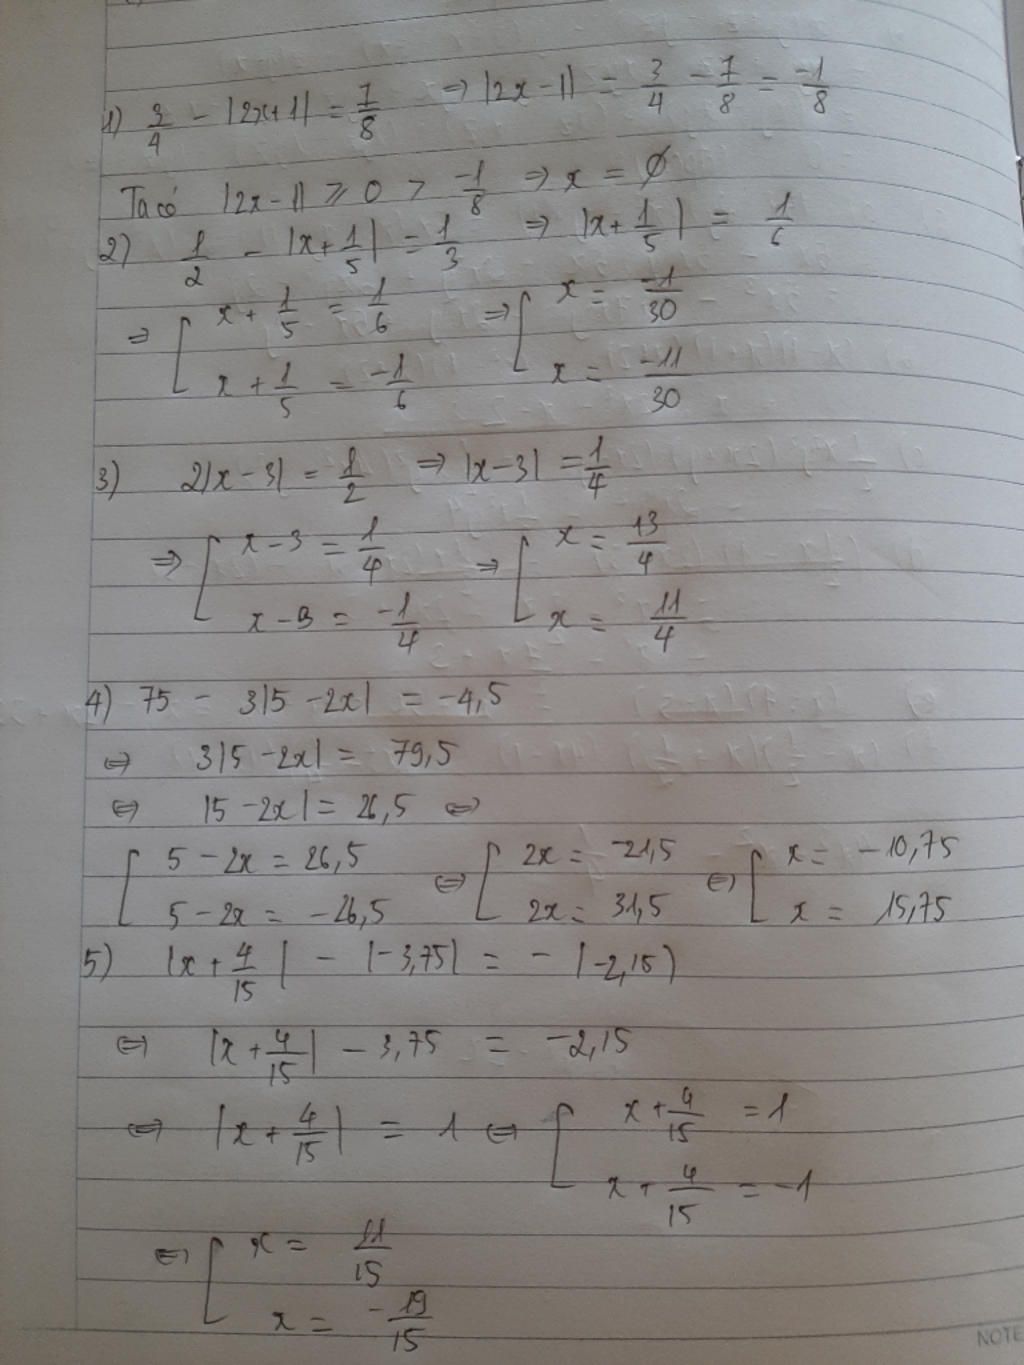 1) 3/4 - |2x+1| = 7/8 => |2x-1| = 3/4 - 7/8 = -1/8
Ta có |2x-1| ⩾ 0 > -1/8 => x = ∅
2) 1/2 - |x+1/5| = 1/3 => |x+1/5| = 1/6
=> [ x + 1/5 = 1/6 => [ x = -1/30
x + 1/5 = -1/6 x = -11/30
3) 2|x-3| = 1/2 => |x-3| = 1/4
=> [ x-3 = 1/4 => [ x = 13/4
x-3 = -1/4 x = 11/4
4) 75 - 3|5-2x| = -4,5
<=> 3|5-2x| = 79,5
<=> |5-2x| = 26,5 <=>
[ 5-2x = 26,5 <=> [ 2x = -21,5 <=> [ x = -10,75
5-2x = -26,5 2x = 31,5 x = 15,75
5) |x+4/15| - |-3,75| = -|-2,15)
<=> |x+4/15| - 3,75 = -2,15
<=> |x+4/15| = 1 <=> [ x+4/15 = 1
x+4/15 = -1
<=> [ x = 11/15
x = -19/15
NOTE